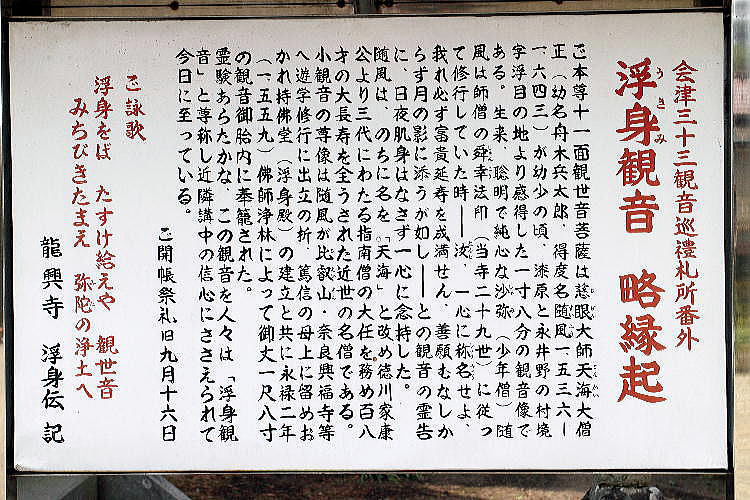 会津三十三観音巡禮札所番外
浮身観音 略縁起
うきみ
ご本尊十一面観世音菩薩は慈眼大師天海大僧
正（幼名舟木兵太郎、得度名随風一五三六ー
一六四三）が幼少の頃、漆原と永井野の村境
字浮目の地より感得した一寸八分の観音像で
ある。生来、聡明で純心な沙弥（少年僧）随
風は師僧の舜幸法印（当寺二十九世）に従っ
て修行していた時――汝、一心に称名せよ、
我れ必ず富貴延寿を成満せん、善願もなしか
らず月の影に添うが如し――との観音の霊告
に、日夜肌身はなさず一心に念持した。
随風は、のちに名を「天海」と改め徳川家康
公より三代にわたる指南僧の大任を務め百八
才の大長寿を全うされた近世の名僧である。
小観音の尊像は随風が比叡山・奈良興福寺等
へ遊学修行に出立の折、篤信の母上に留めお
かれ持佛堂（浮身殿）の建立と共に永禄二年
（一五五九）佛師浄林によって御丈一尺八寸
の観音御胎内に奉籠された。
霊験あらたかな、この観音を人々は「浮身観
音」と尊称し近隣講中の信心にささえられて
今日に至っている。
ご開帳祭礼旧九月十六日
ご詠歌
浮身をば たすけ給えや 観世音
みちびきたまえ 弥陀の浄土へ
龍興寺 浮身伝記